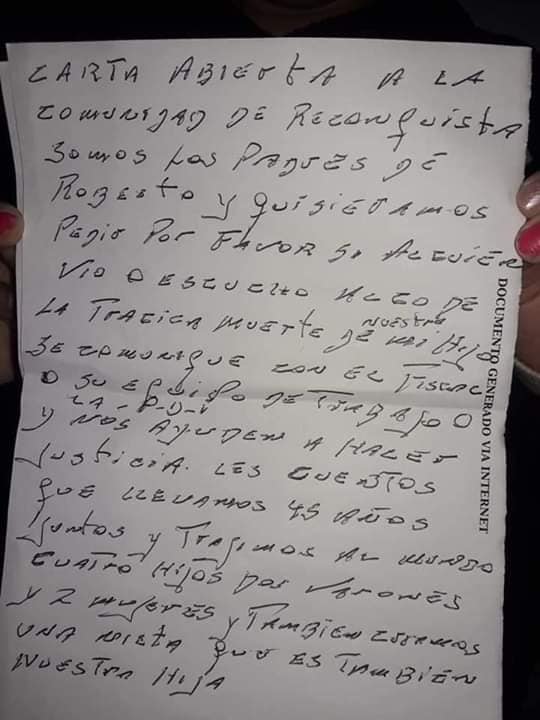 CARTA ABIERTA A LA
COMUNIDAD DE RECONQUISTA
SOMOS LOS PADRES DE
ROBERTO Y QUISIERAMOS
PEDIR POR FAVOR SI ALGUIEN
VIO O ESCUCHO ALGO DE
LA TRAGICA MUERTE DE NUESTRO HIJO
SE COMUNIQUE CON EL FISCAL
O SU EQUIPO DE TRABAJO O
LA - P-D-I
Y NOS AYUDEN A HACER
JUSTICIA. LES CUENTOS
QUE LLEVAMOS 45 AÑOS
JUNTOS Y TRAJIMOS AL MUNDO
CUATRO HIJOS DOS VARONES
Y 2 MUJERES Y TAMBIEN CRIAMOS
UNA NIETA QUE ES TAMBIÉN
NUESTRA HIJA
DOCUMENTO GENERADO VIA INTERNET